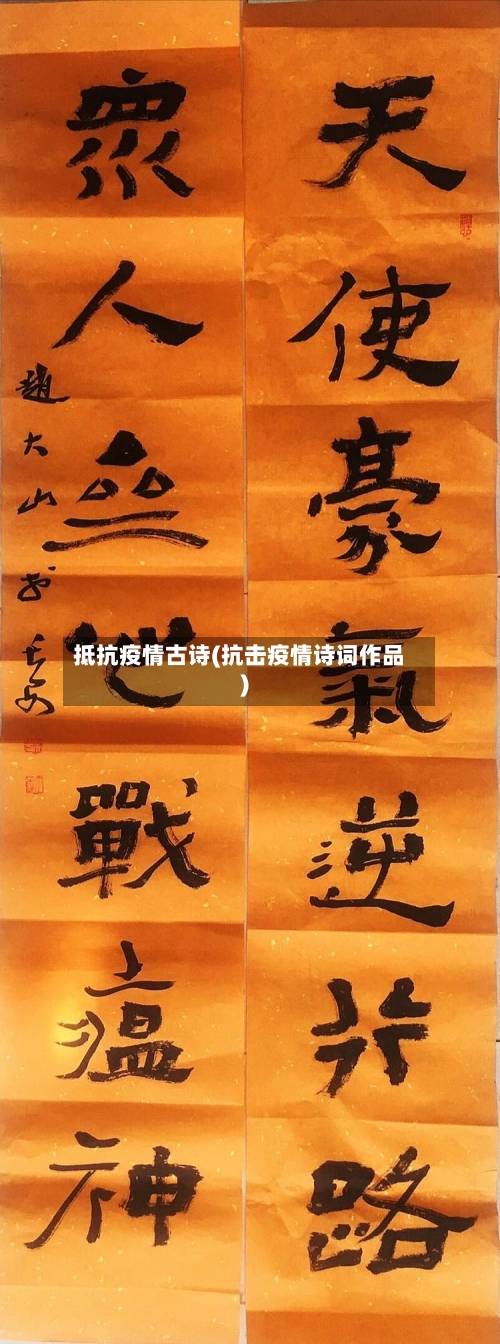 天使豪氣逆行路
衆人齊戰瘟神
趙大山书
抵抗疫情古诗(抗击疫情诗词作品
)